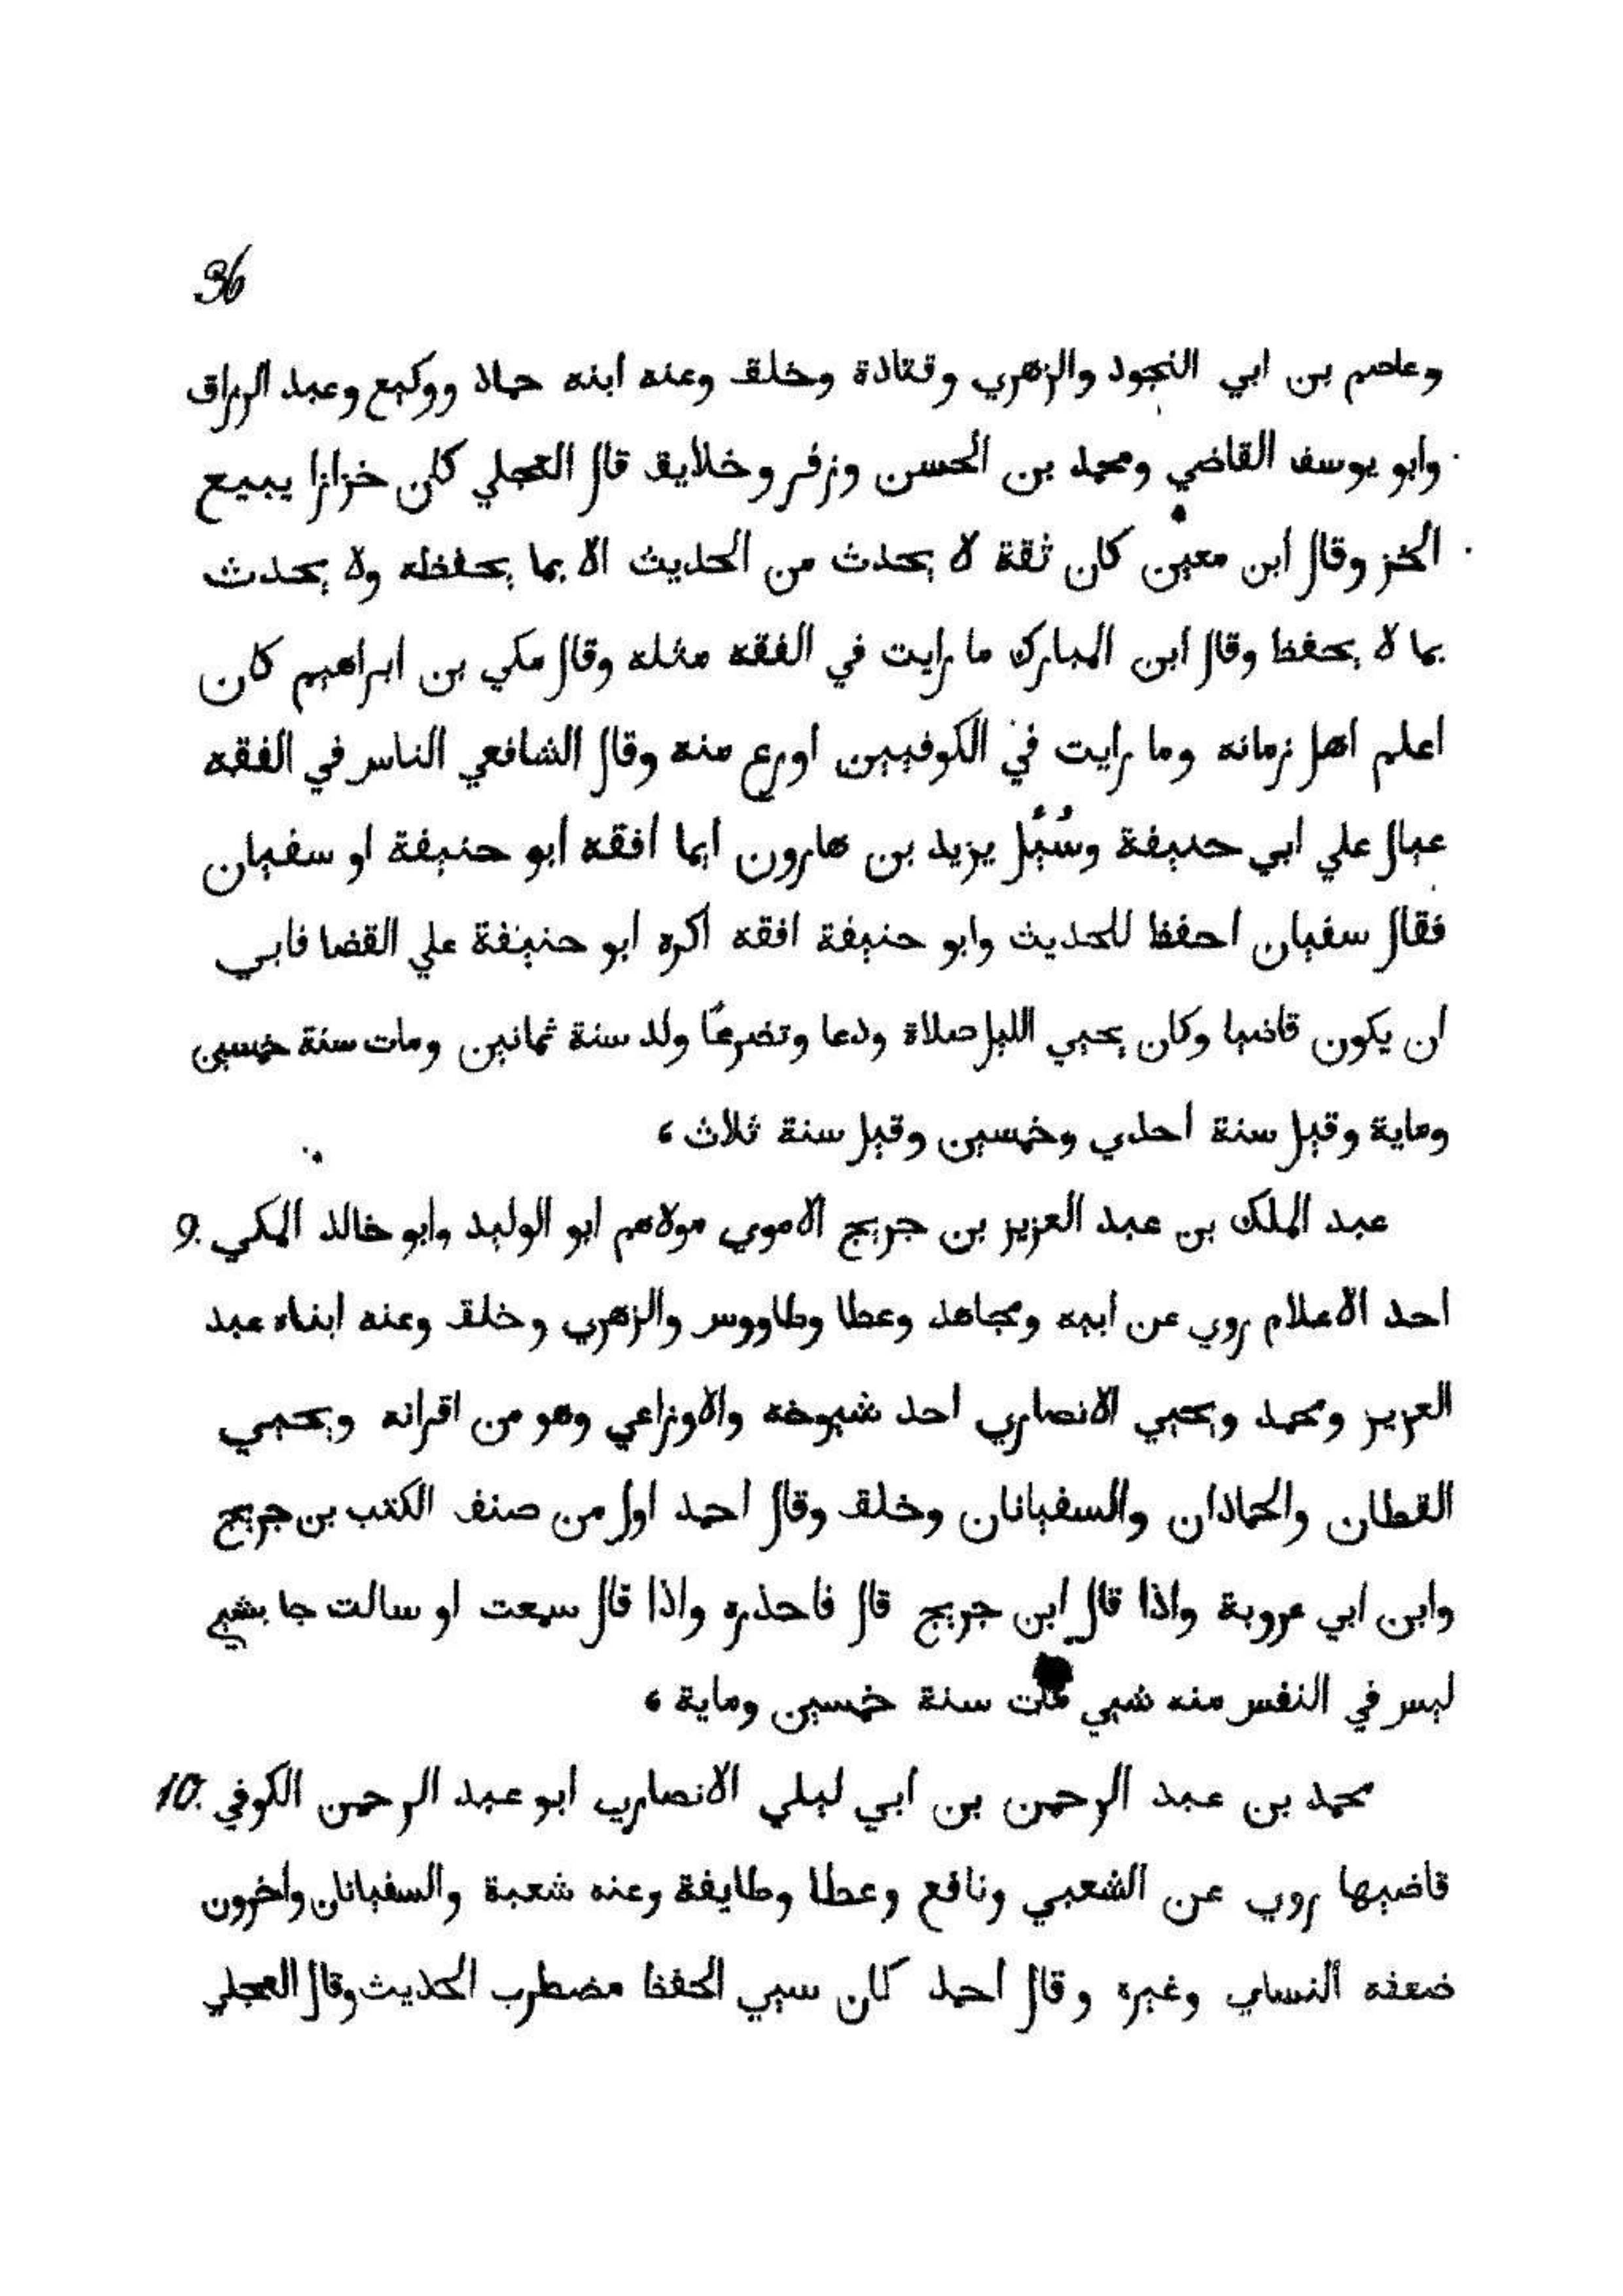 36
وعاصم بن ابي النجود والزهري وقتادة وخلف وعنه ابنه حماد ووكيع وعبد الرزاق
وابو يوسف القاضي ومحمد بن الحسن وزفر وخلايق قال العجلي كان خزازا يبيع
الخز وقال ابن معين كان ثقة لا يحدث من الحديث الا بما يحفظه ولا يحدث
بما لا يحفظ وقال ابن المبارك ما رايت في الفقه مثله وقال مكي بن ابراهيم كان
اعلم اهل زمانه وما رايت في الكوفيين اورع منه وقال الشافعي الناس في الفقه
عيال علي ابي حنيفة وسُيُل يزيد بن هارون ايما افقه ابو حنيفة او سفيان
فقال سفيان احفظ للحديث وابو حنيفة افقه اكره ابو حنيفة علي القضا فابي
ان يكون قاضيا وكان يحيي الليل صلاة ودعا وتضرعًا ولد سنة ثمانين ومات سنة خمسين
وماية وقيل سنة احدي وخمسين وقيل سنة ثلاث ،
عبد الملك بن عبد العزيز بن جريج الاموي مولاهم ابو الوليد وابو خالد المكي .9
احد الاعلام روي عن ابيه ومجاهد وعطا وطاووس والزهري وخلف وعنه ابناه عبد
العزيز ومحمد ويحيي الانصاري احد شيوخه والاوزاعي وهو من اقرانه ويحيي
القطان والحمادان والسفيانان وخلف وقال احمد اول من صنف الكتب بن جريج
وابن ابي عروبة واذا قال ابن جريج قال فاحذره واذا قال سمعت او سالت جا بشي
ليس في النفس منه شي مات سنة خمسين وماية ،
محمد بن عبد الرحمن بن ابي ليلي الانصاري ابو عبد الرحمن الكوفي .10
قاضيها روي عن الشعبي ونافع وعطا وطايفة وعنه شعبة والسفيانان واخرون
ضعفه النساي وغيره وقال احمد كان سيي الحفظ مضطرب الحديث وقال العجلي